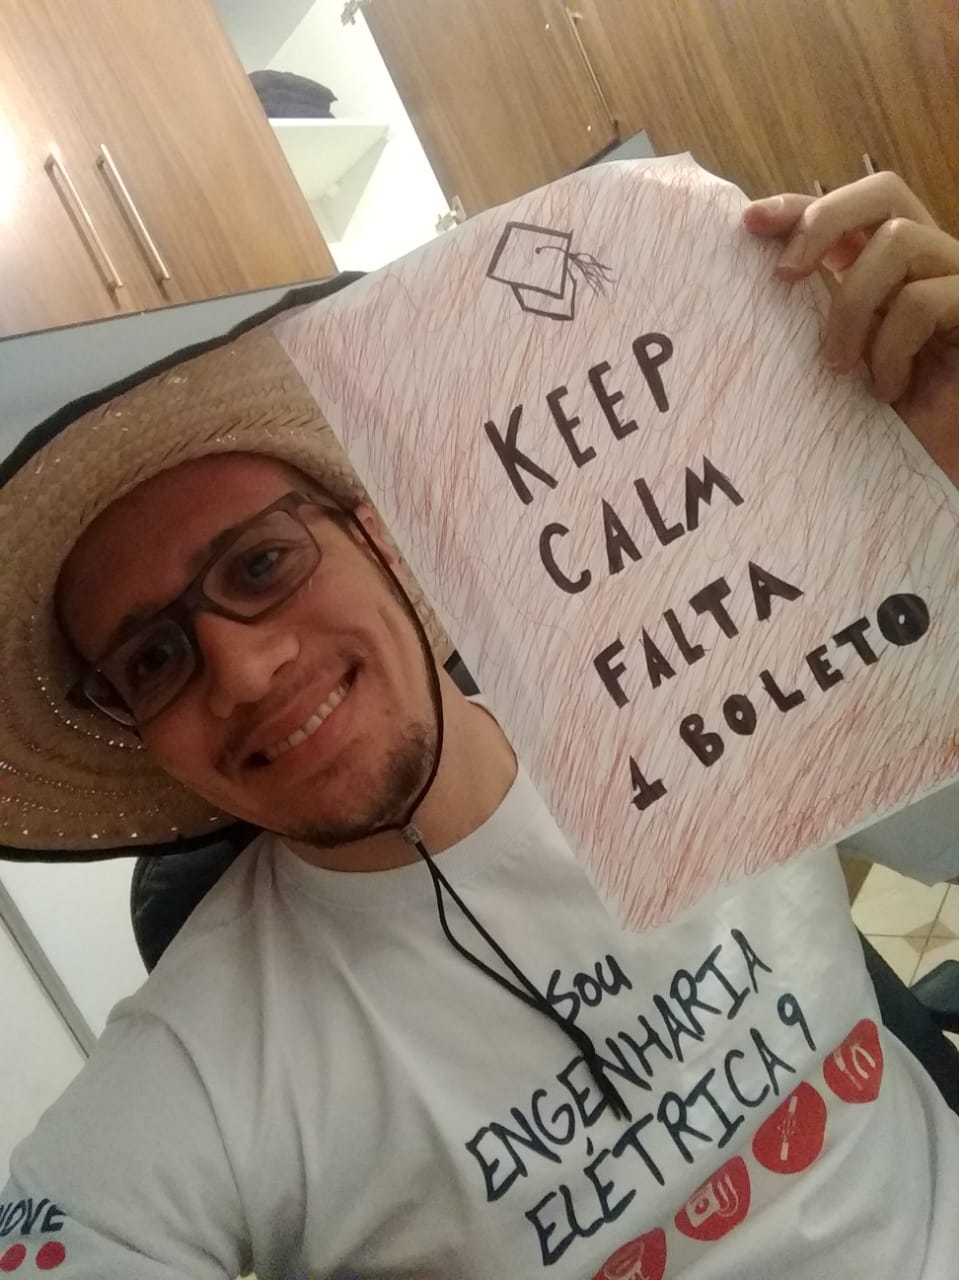 KEEP
CALM
FALTA
1 BOLETO
Sou
ENGENHARIA
ELÉTRICA 9